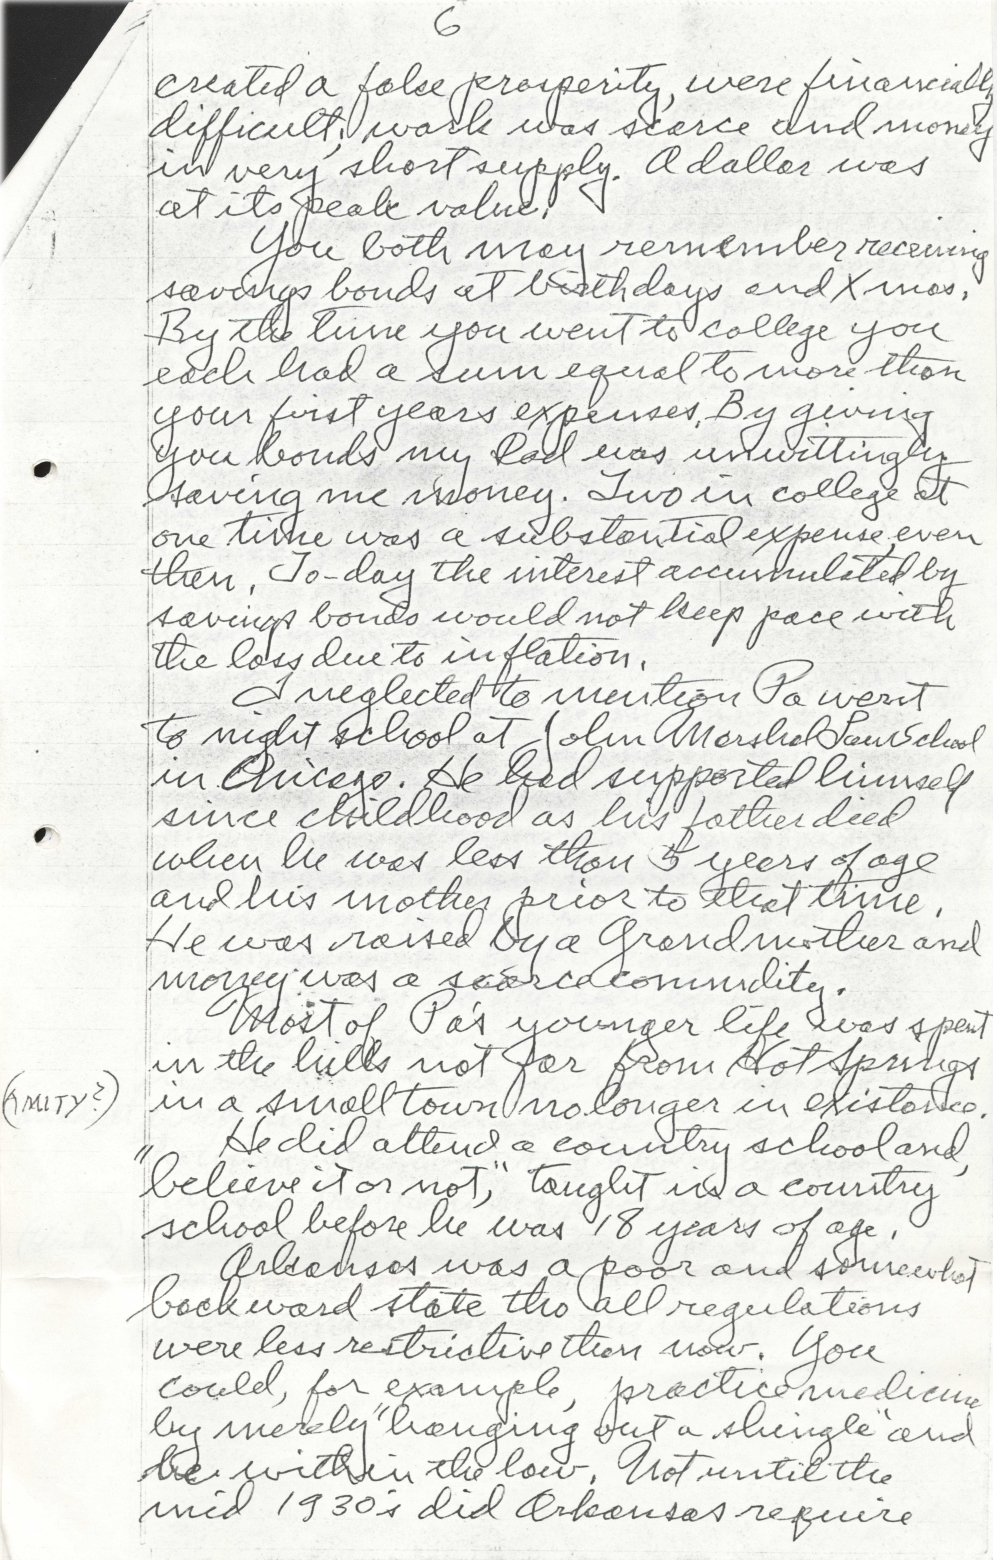 6
created a false prosperity, were financially
difficult, work was scarce and money
in very short supply. A dollar was
at its peak value.
You both may remember receiving
savings bonds at birthdays and Xmas.
By the time you went to college you
each had a sum equal to more than
your first years expenses. By giving
you bonds my Dad was unwittingly
saving me money. Two in college at
one time was a substantial expense, even
then. To-day the interest accumulated by
savings bonds would not keep pace with
the loss due to inflation.
I neglected to mention Pa went
to night school at John Marshal Law School
in Chicago. He had supported himself
since childhood as his father died
when he was less than 5 years of age
and his mother prior to that time.
He was raised by a Grandmother and
money was a scarce commodity.
Most of Pa's younger life was spent
in the hills not far from Hot Springs
(AMITY?)
in a small town no longer in existance.
He did attend a country school and,
"believe it or not," taught in a country
school before he was 18 years of age.
Arkansas was a poor and somewhat
backward state tho all regulations
were less restrictive then now. You
could, for example, practice medicine
by merely "hanging out a shingle" and
be within the law. Not until the
mid 1930's did Arkansas require